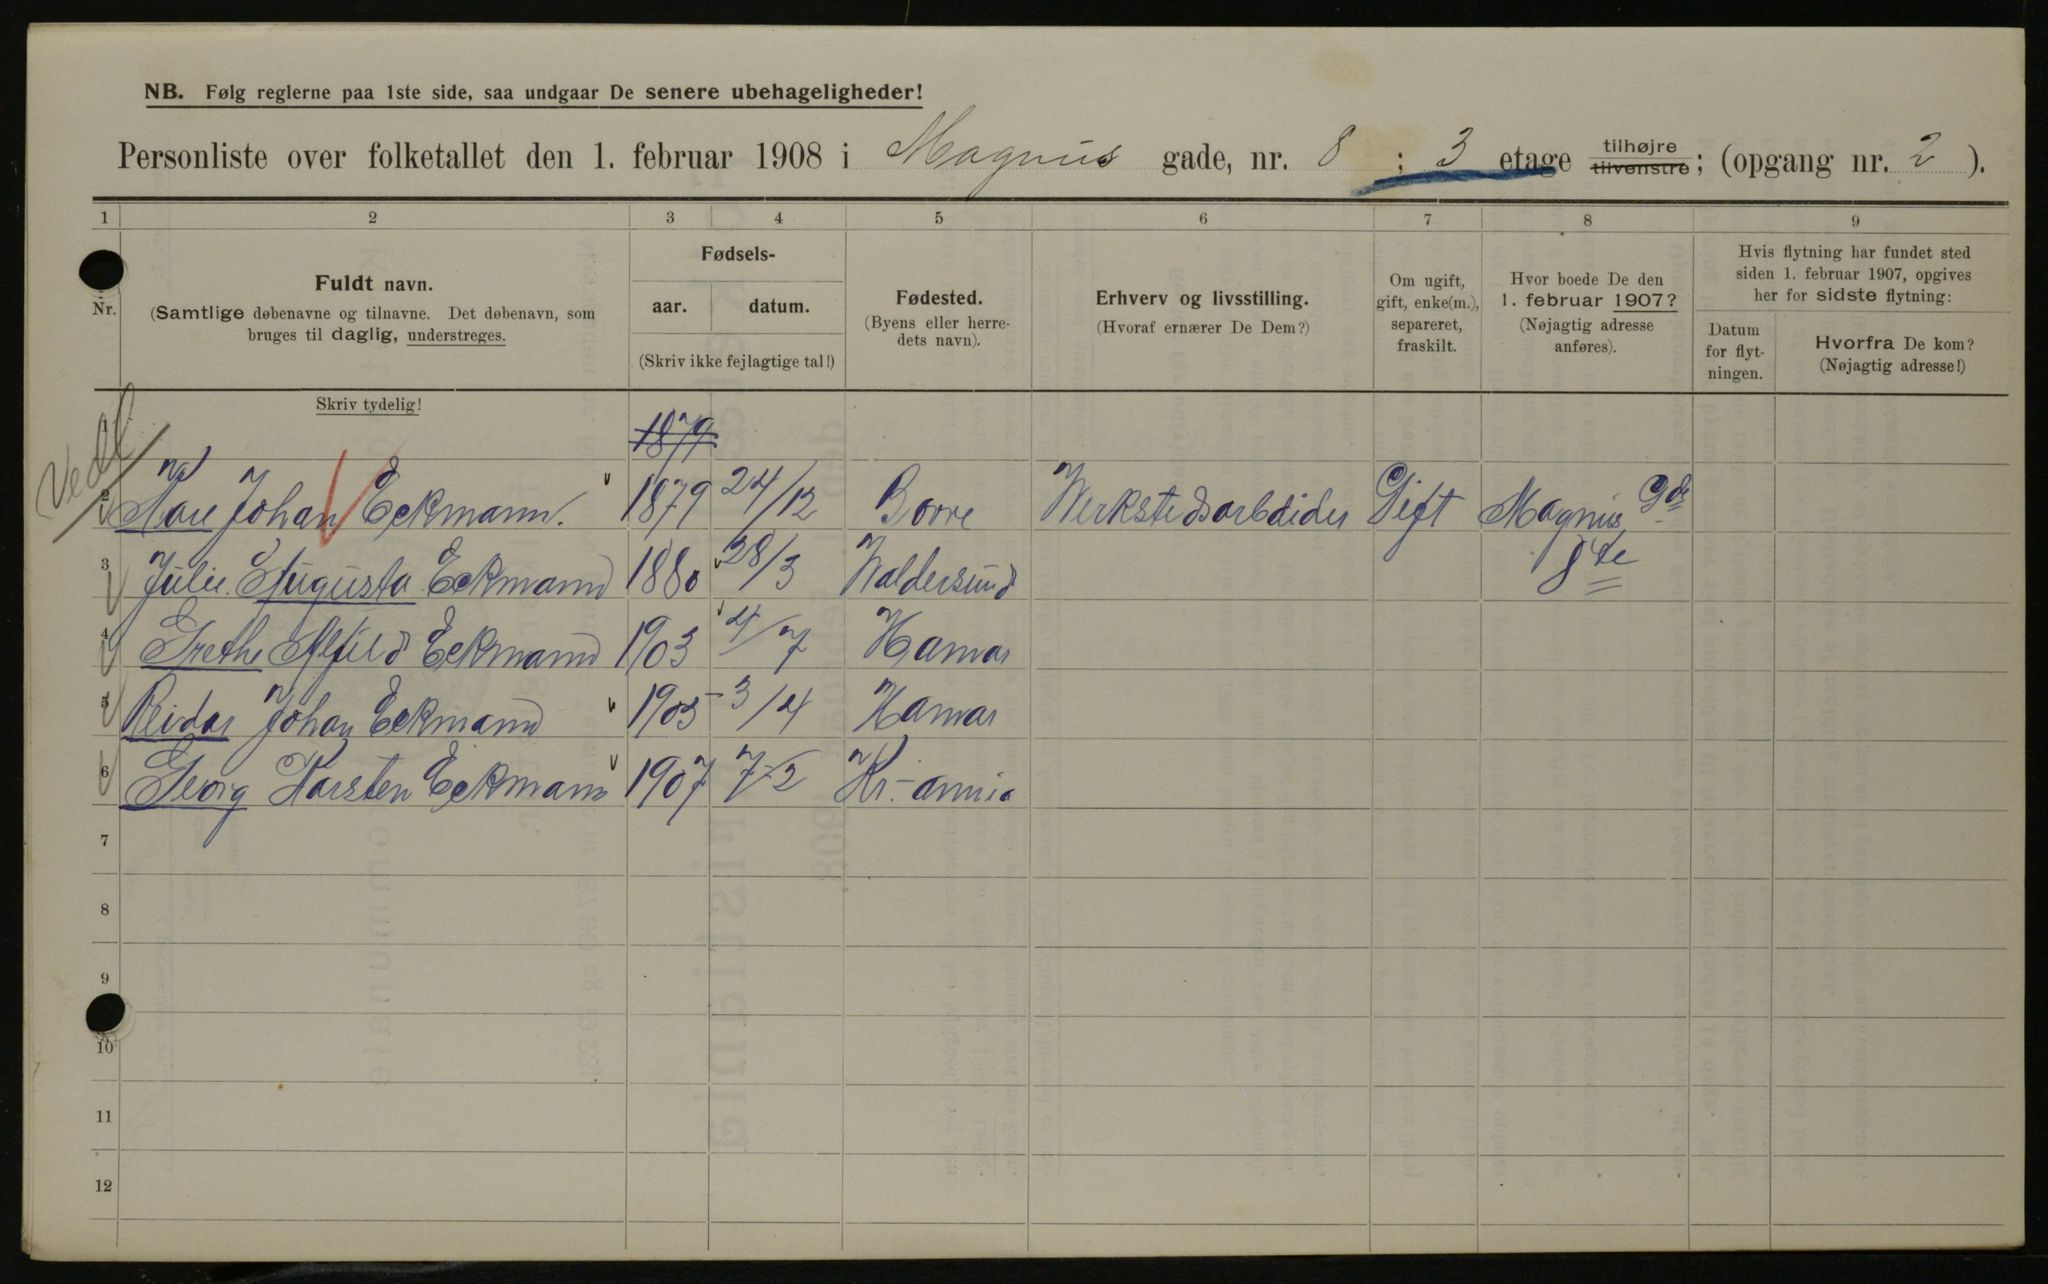 NB. Følg reglerne paa 1ste side, saa undgaar De senere ubehageligheder!
Personliste over folketallet den 1. februar 1908 i Magnus gade, nr. 8 ; 3 etage tilhøjre tilvenstre; (opgang nr. 2 ).
1 2 3 4 5 6 7 8 9
Nr.
Fuldt navn.
(Samtlige døbenavne og tilnavne. Det døbenavn, som
bruges til daglig, understreges.
Fødsels-
aar. datum.
(Skriv ikke fejlagtige tal!)
Fødested.
(Byens eller herre-
dets navn).
Erhverv og livsstilling.
(Hvoraf ernærer De Dem?)
Om ugift,
gift, enke(m.),
separeret,
fraskilt.
Hvor boede De den
1. februar 1907?
(Nøjagtig adresse
anføres).
Hvis flytning har fundet sted
siden 1. februar 1907, opgives
her for sidste flytning:
Datum
for flyt-
ningen.
Hvorfra De kom?
(Nøjagtig adresse!)
Skriv tydelig!
1879
2 Johan Eckmann. 1879 24/12 Borre Werkstedsarbeider Gift Magnus Gde
3 Julie Augusta Eckmann 1880 28/3 Waldersund 8de
4 Grethe Alfild Eckmann 1903 4/7 Hamar
5 Reidar Johan Eckmann 1905 3/4 Hamar
6 Georg Karsten Eckmann 1907 7-2 Kr.-annia
7
8
9
10
11
12